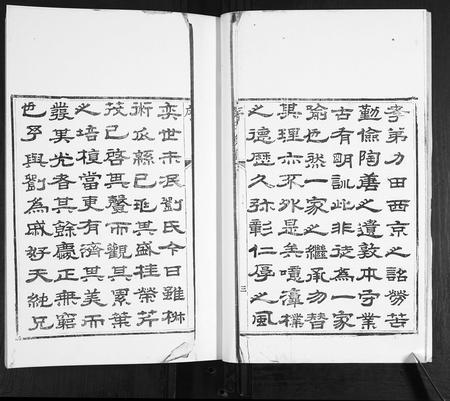 孝弟力田西京之詔勞苦
勤儉陶善之遺敦本守業
古有明訓此非徒為一家
喻也然一家之繼承勿替
其理亦不外是矣嘎漳樸
之德歷久弥彰仁厚之風
三
奕世未泯劉氏今日雖椒
術瓜緜已甡其盛桂榮芹
茂已啓其馨而觀其累葉
之培植當更有濟其美而
發其光者其餘慶正無窮
也予與劉為戚好天純兄